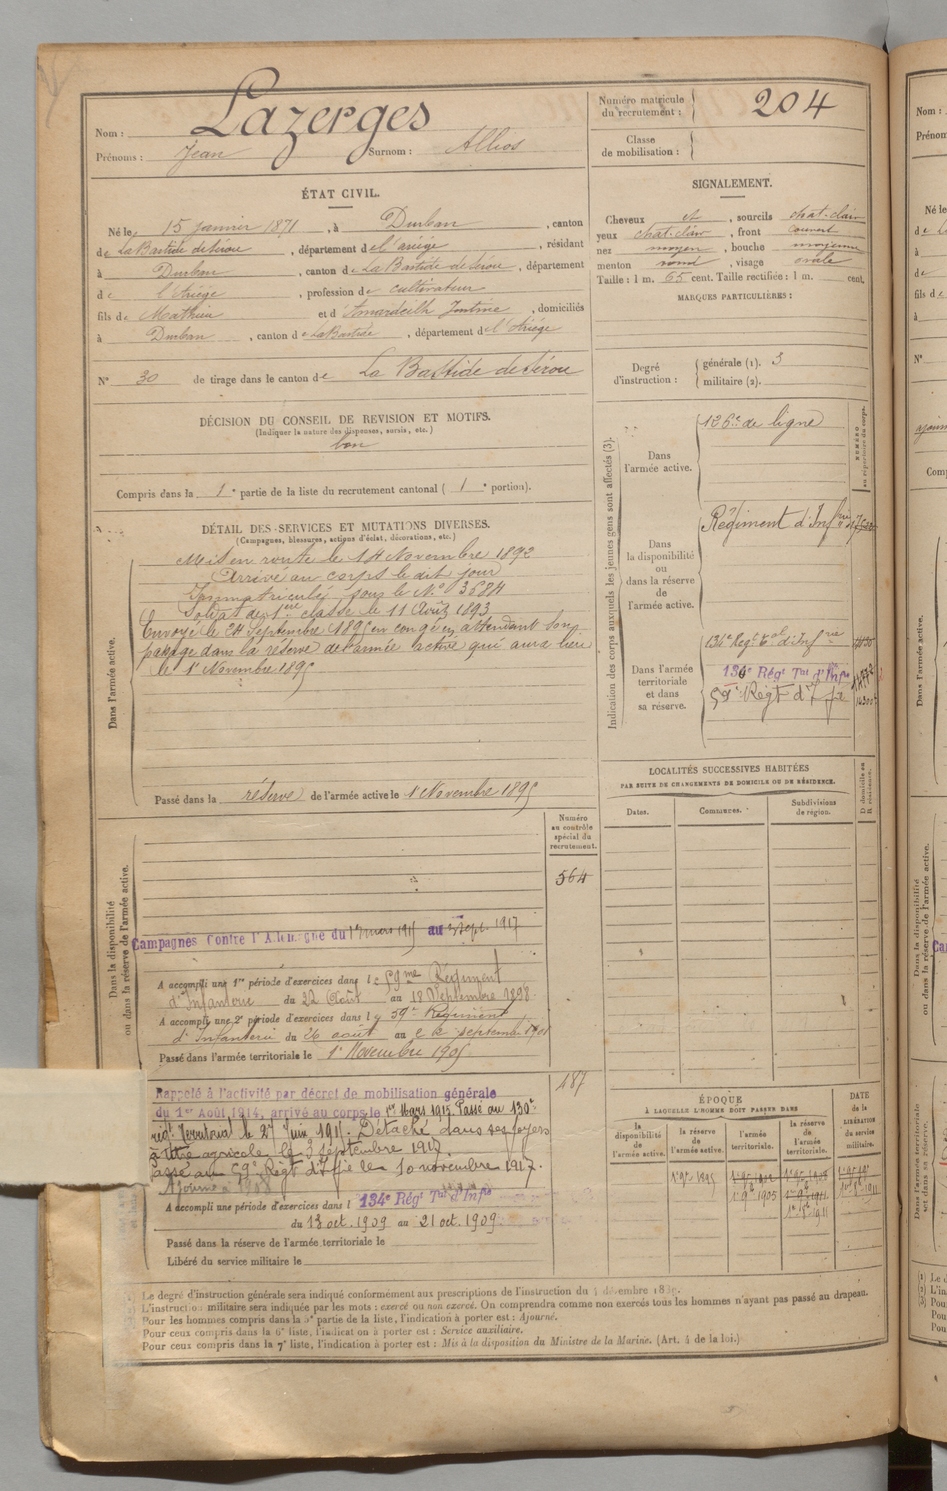 Nom : Lazerges
Prénoms : Jean Surnom : Allios
Numéro matricule du recrutement : 204
Classe de mobilisation :
ÉTAT CIVIL.
Né le 15 janvier 1871, à Durban, canton
de La Bastide de Sérou, département de l'ariège, résidant
à Durban, canton de La Bastide de Sérou, département
de l'Ariège, profession de cultivateur
fils de Mathieu et d domiciliés
à Durban, canton de La Bastide, département de l'Ariège
N° 30 de tirage dans le canton de La Bastide de Sérou
SIGNALEMENT.
Cheveux et, sourcils chat-clair
yeux chat-clair, front couvert
nez moyen, bouche moyenne
menton rond, visage ovale
Taille : 1 m. 65 cent. Taille rectifiée : 1 m. cent.
MARQUES PARTICULIÈRES :
Degré d'instruction : générale (1). 3
militaire (2).
DÉCISION DU CONSEIL DE REVISION ET MOTIFS.
(Indiquer la nature des dispenses, sursis, etc.)
bon
Compris dans la 1e partie de la liste du recrutement cantonal (1e portion).
DÉTAIL DES SERVICES ET MUTATIONS DIVERSES.
(Campagnes, blessures, actions d'éclat, décorations, etc.)
Dans l'armée active.
Mis en route le 14 Novembre 1892
Arrivé au corps le dit jour
Immatriculé sous le N° 3684
Soldat de 1ère classe le 11 Avril 1893
Envoyé le 24 Septembre 1895 en congé en attendant son
passage dans la réserve de l'armée active qui aura lieu
le 1er Novembre 1895
Passé dans la réserve de l'armée active le 1 Novembre 1895
Indication des corps auxquels les jeunes gens sont affectés (3).
NUMÉRO au répertoire du corps.
Dans l'armée active.
126e de ligne
Dans la disponibilité ou dans la réserve de l'armée active.
Régiment d'Infrie
Dans l'armée territoriale et dans sa réserve.
134e Regt Tal d'Infrie
134e Régt Tal d'Infie
59e Régt d'Ifie
LOCALITÉS SUCCESSIVES HABITÉES
PAR SUITE DE CHANGEMENTS DE DOMICILE OU DE RÉSIDENCE.
Dates. Communes. Subdivisions de région. D domicile ou R résidence.
Dans la disponibilité ou dans la réserve de l'armée active.
Numéro au contrôle spécial du recrutement.
564
Campagnes Contre l'Allemagne du 1er mars 1915 au 3 Sept. 1917
A accompli une 1re période d'exercices dans le 59me Régiment
d'Infanterie du 22 Août au 18 Septembre 1898
A accompli une 2e période d'exercices dans le 59e Régiment
d'Infanterie du 26 août au septembre 1901
Passé dans l'armée territoriale le 1er Novembre 1905
187
Rappelé à l'activité par décret de mobilisation générale
du 1er Août 1914, arrivé au corps le 1er Mars 1915. Passé au 130e
régt Territorial le 27 Juin 1915. Détaché dans ses foyers
à titre agricole le 3 septembre 1917.
Passé au 59e Régt d'Ifie le 10 novembre 1917.
Ajourné
A accompli une période d'exercices dans l 134e Régt Tal d'Infie
du 13 oct. 1909 au 21 oct. 1909
Passé dans la réserve de l'armée territoriale le
Libéré du service militaire le
ÉPOQUE
À LAQUELLE L'HOMME DOIT PASSER DANS
la disponibilité de l'armée active. la réserve de l'armée active. l'armée territoriale. la réserve de l'armée territoriale.
DATE de la LIBÉRATION du service militaire.
1 9bre 1895
1 9bre 1905
Le degré d'instruction générale sera indiqué conformément aux prescriptions de l'instruction du décembre
L'instruction militaire sera indiquée par les mots : exercé ou non exercé. On comprendra comme non exercés tous les hommes n'ayant pas passé au drapeau.
Pour les hommes compris dans la 5e partie de la liste, l'indication à porter est : Ajourné.
Pour ceux compris dans la 6e liste, l'indication à porter est : Service auxiliaire.
Pour ceux compris dans la 7e liste, l'indication à porter est : Mis à la disposition du Ministre de la Marine. (Art. 4 de la loi.)